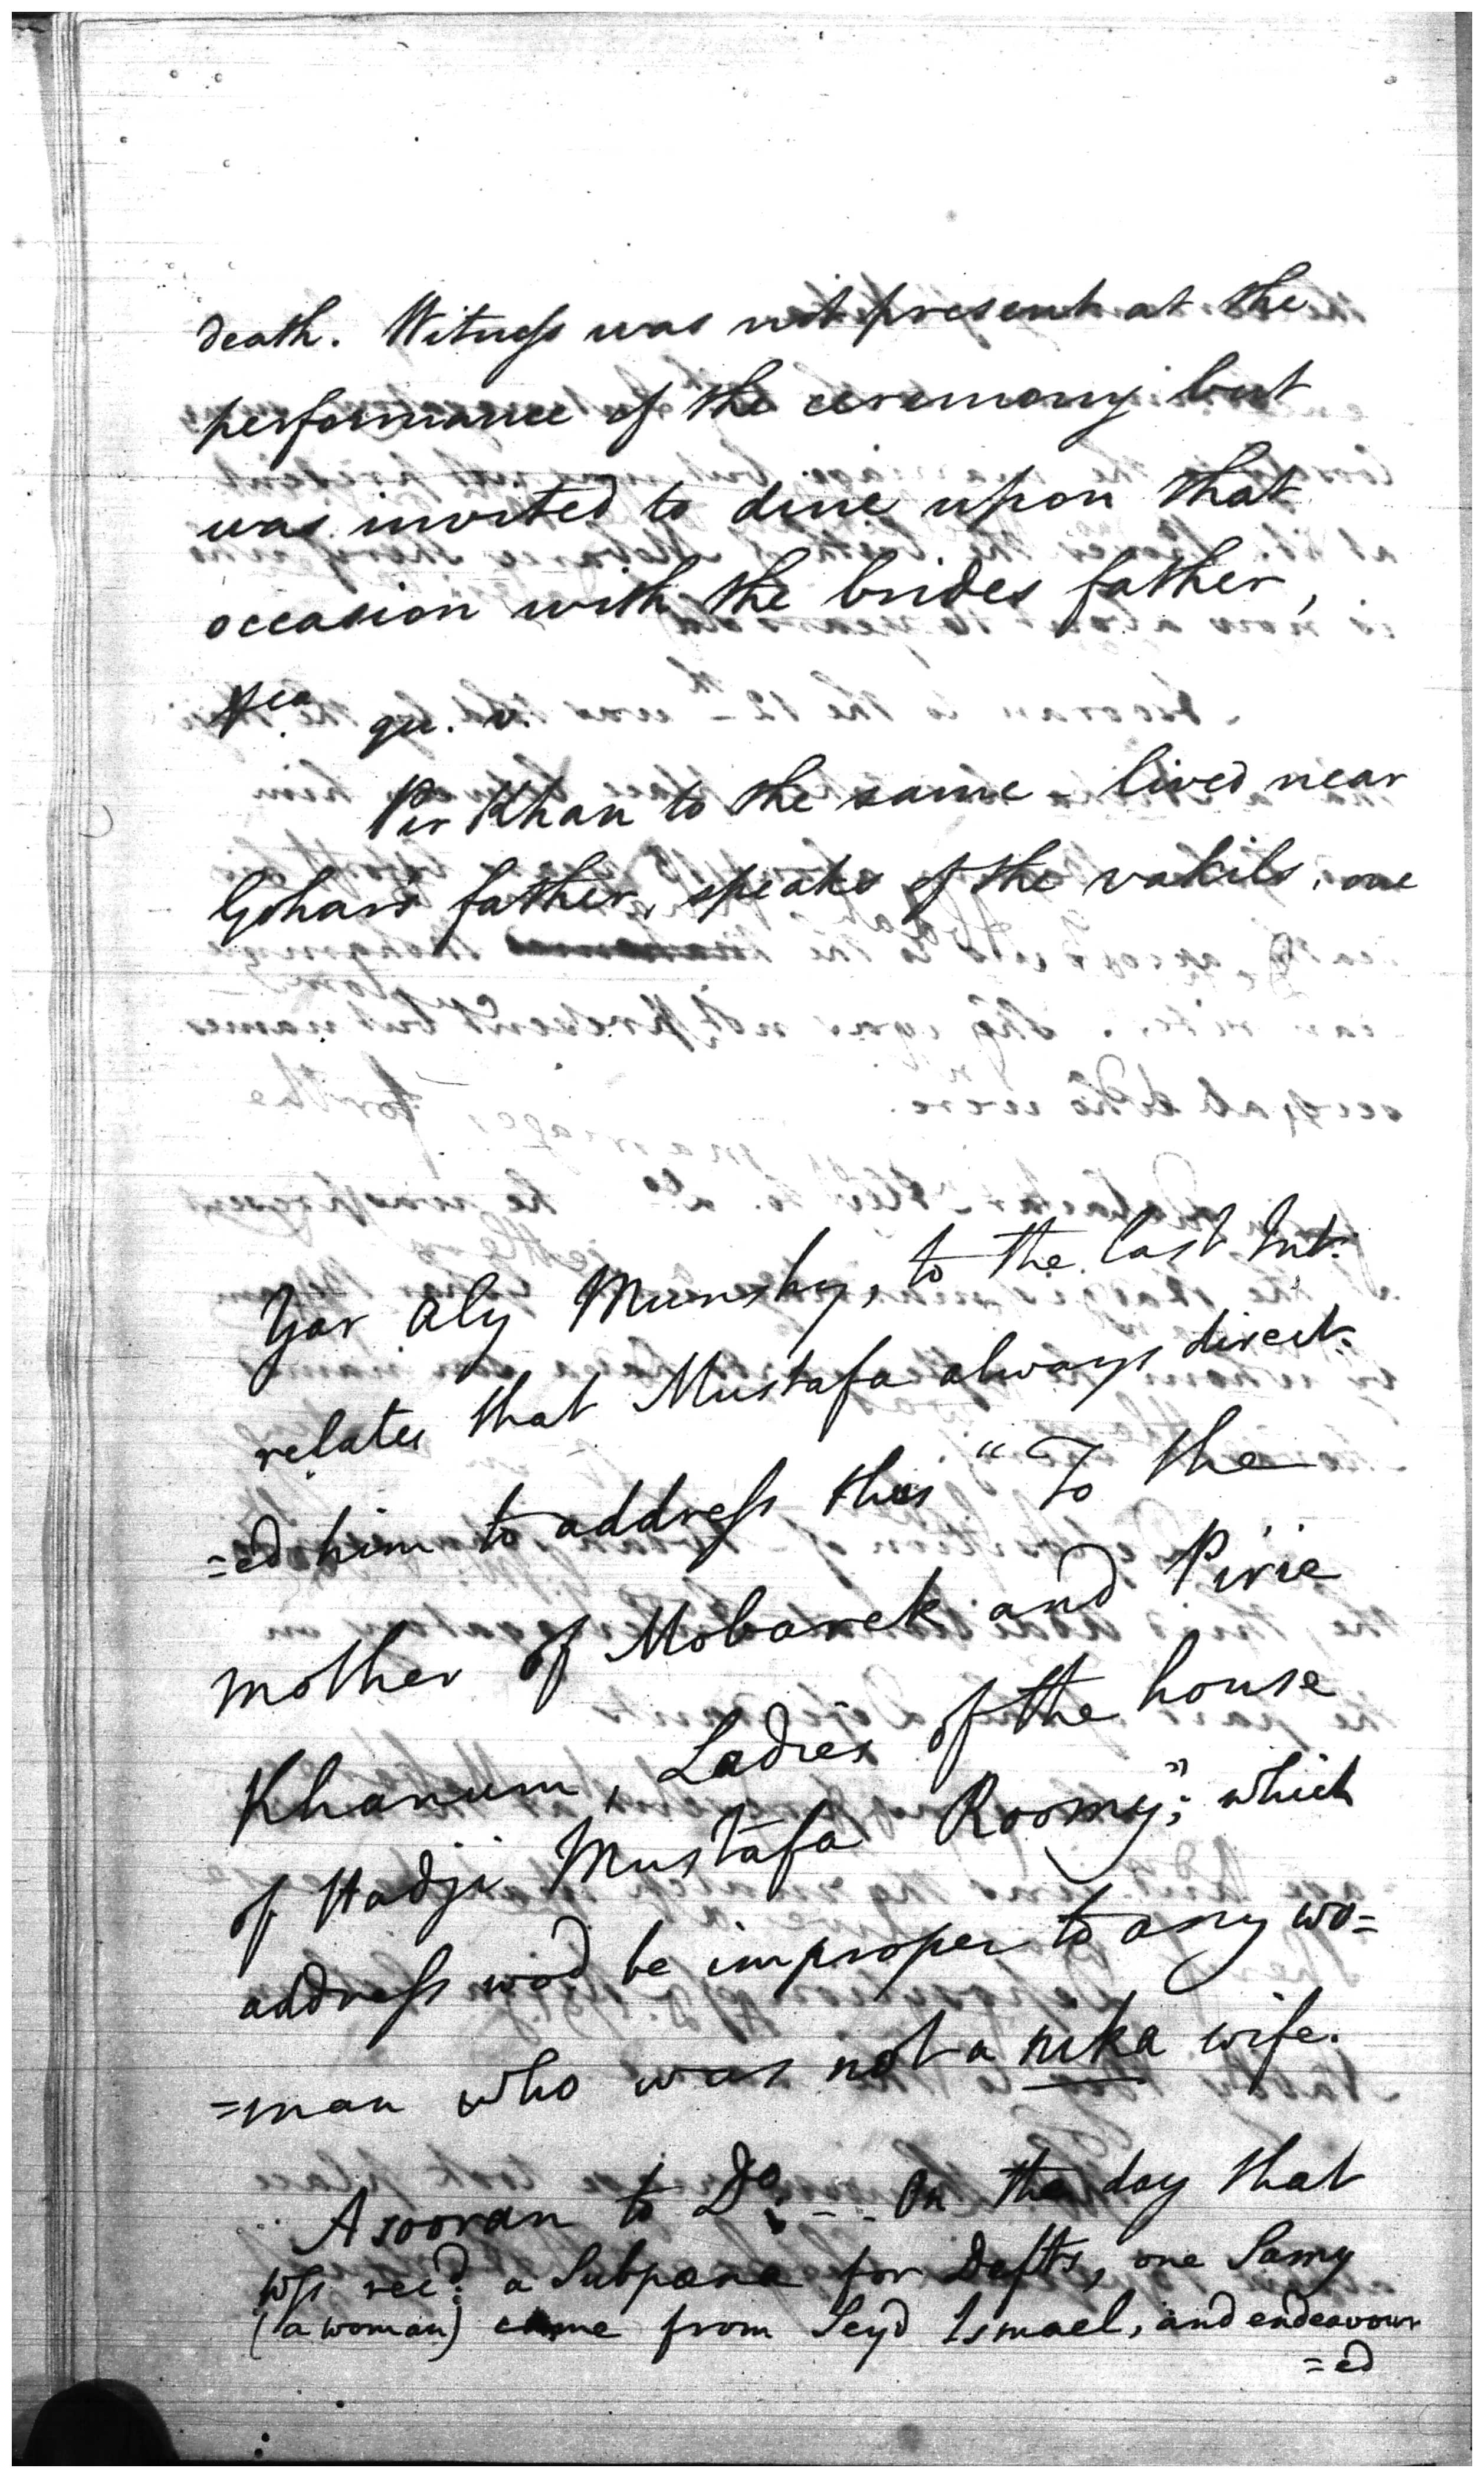 death. Witness was not present at the
performance of the ceremony but
was invited to dine upon that
occasion with the brides father,
qu. v.
Pir Khan to the same - lived near
Gohar's father, speaks of the vakils, one
Yar Aly Munshy, to the last Int.
relates that Mustafa always direct-
=ed him to address thus "To the
mother of Mobarek and Pirie
Khanum, Ladies of the house
of Hadji Mustafa Roomy"; which
address wod be improper to any wo=
=man who was not a nika wife.
Asooran to Do. - - On the day that
Wss recd. a Subpœna for Defts, one Samy
(a woman) came from Seyd Ismael, and endeavour
=ed